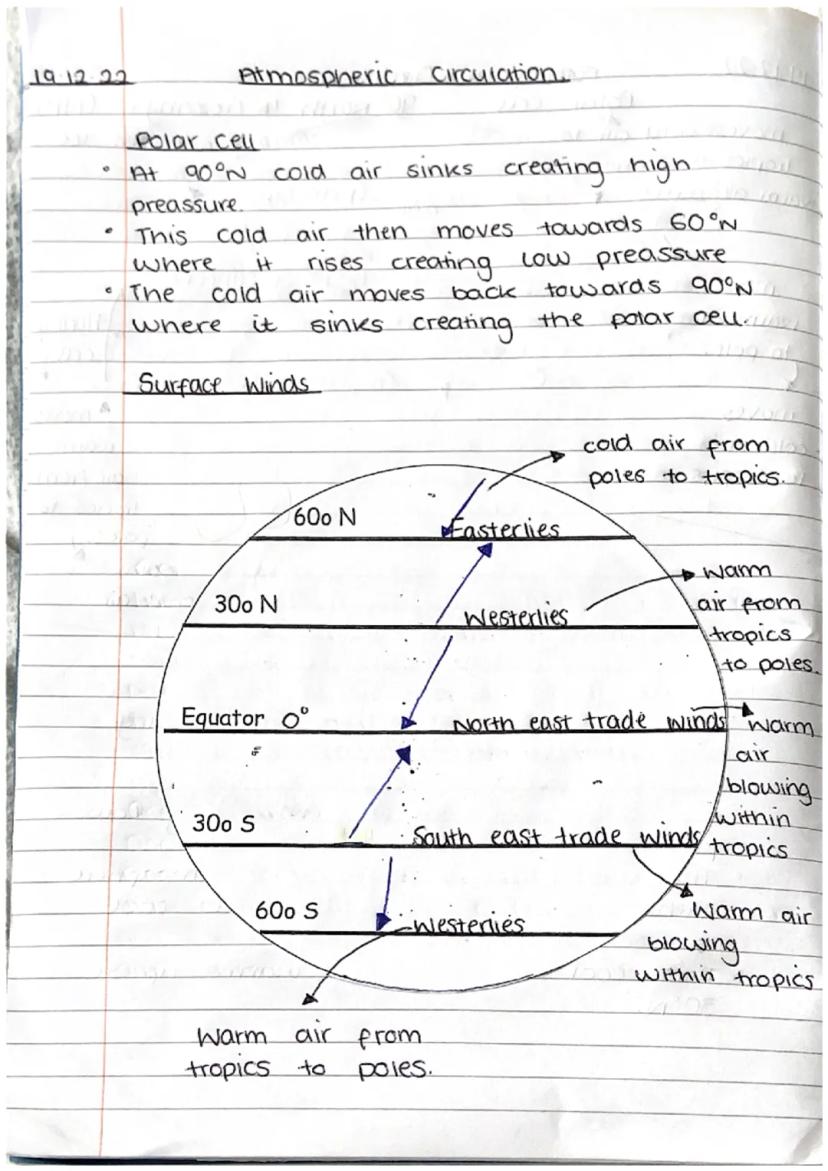 19.12.22 Atmospheric Circulation.
Polar cell
• At 90°N cold air sinks creating high
preassure.
• This cold air then moves towards 60°N
where it rises creating low preassure
• The cold air moves back towards 90°N
where it sinks creating the polar cell.
Surface Winds
cold air from
poles to tropics.
60o N
Easterlies
warm
air from
tropics
to poles.
30o N
Westerlies
Equator 0°
North east trade winds
warm
air
blowing
within
tropics
30o S
South east trade winds
Warm air
blowing
within tropics
60o S
Westerlies
Warm air from
tropics to poles.